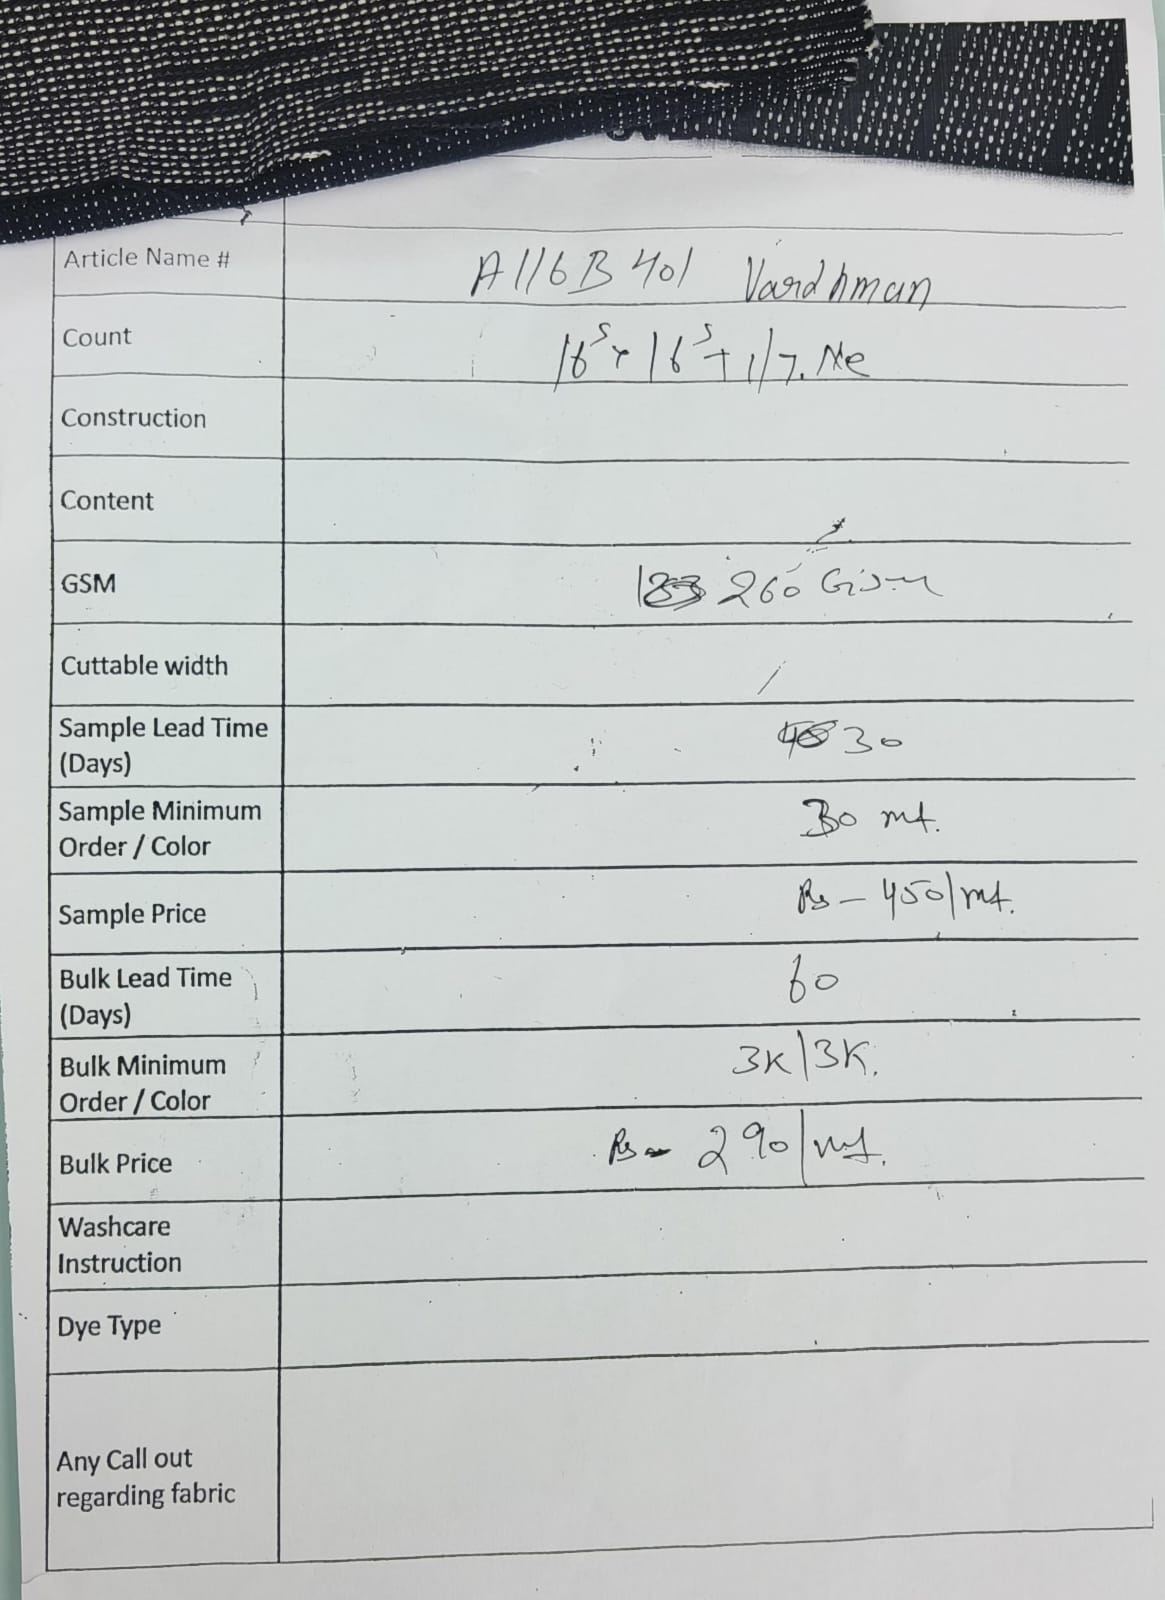 Article Name # A116B401 Vardhman
Count 16s + 16s + 1/7. Ne
Construction
Content
GSM 260 GSM
Cuttable width
Sample Lead Time
(Days) 30
Sample Minimum
Order / Color 30 mt.
Sample Price Rs - 450/mt.
Bulk Lead Time
(Days) 60
Bulk Minimum
Order / Color 3K/3K.
Bulk Price Rs - 290/mt.
Washcare
Instruction
Dye Type
Any Call out
regarding fabric